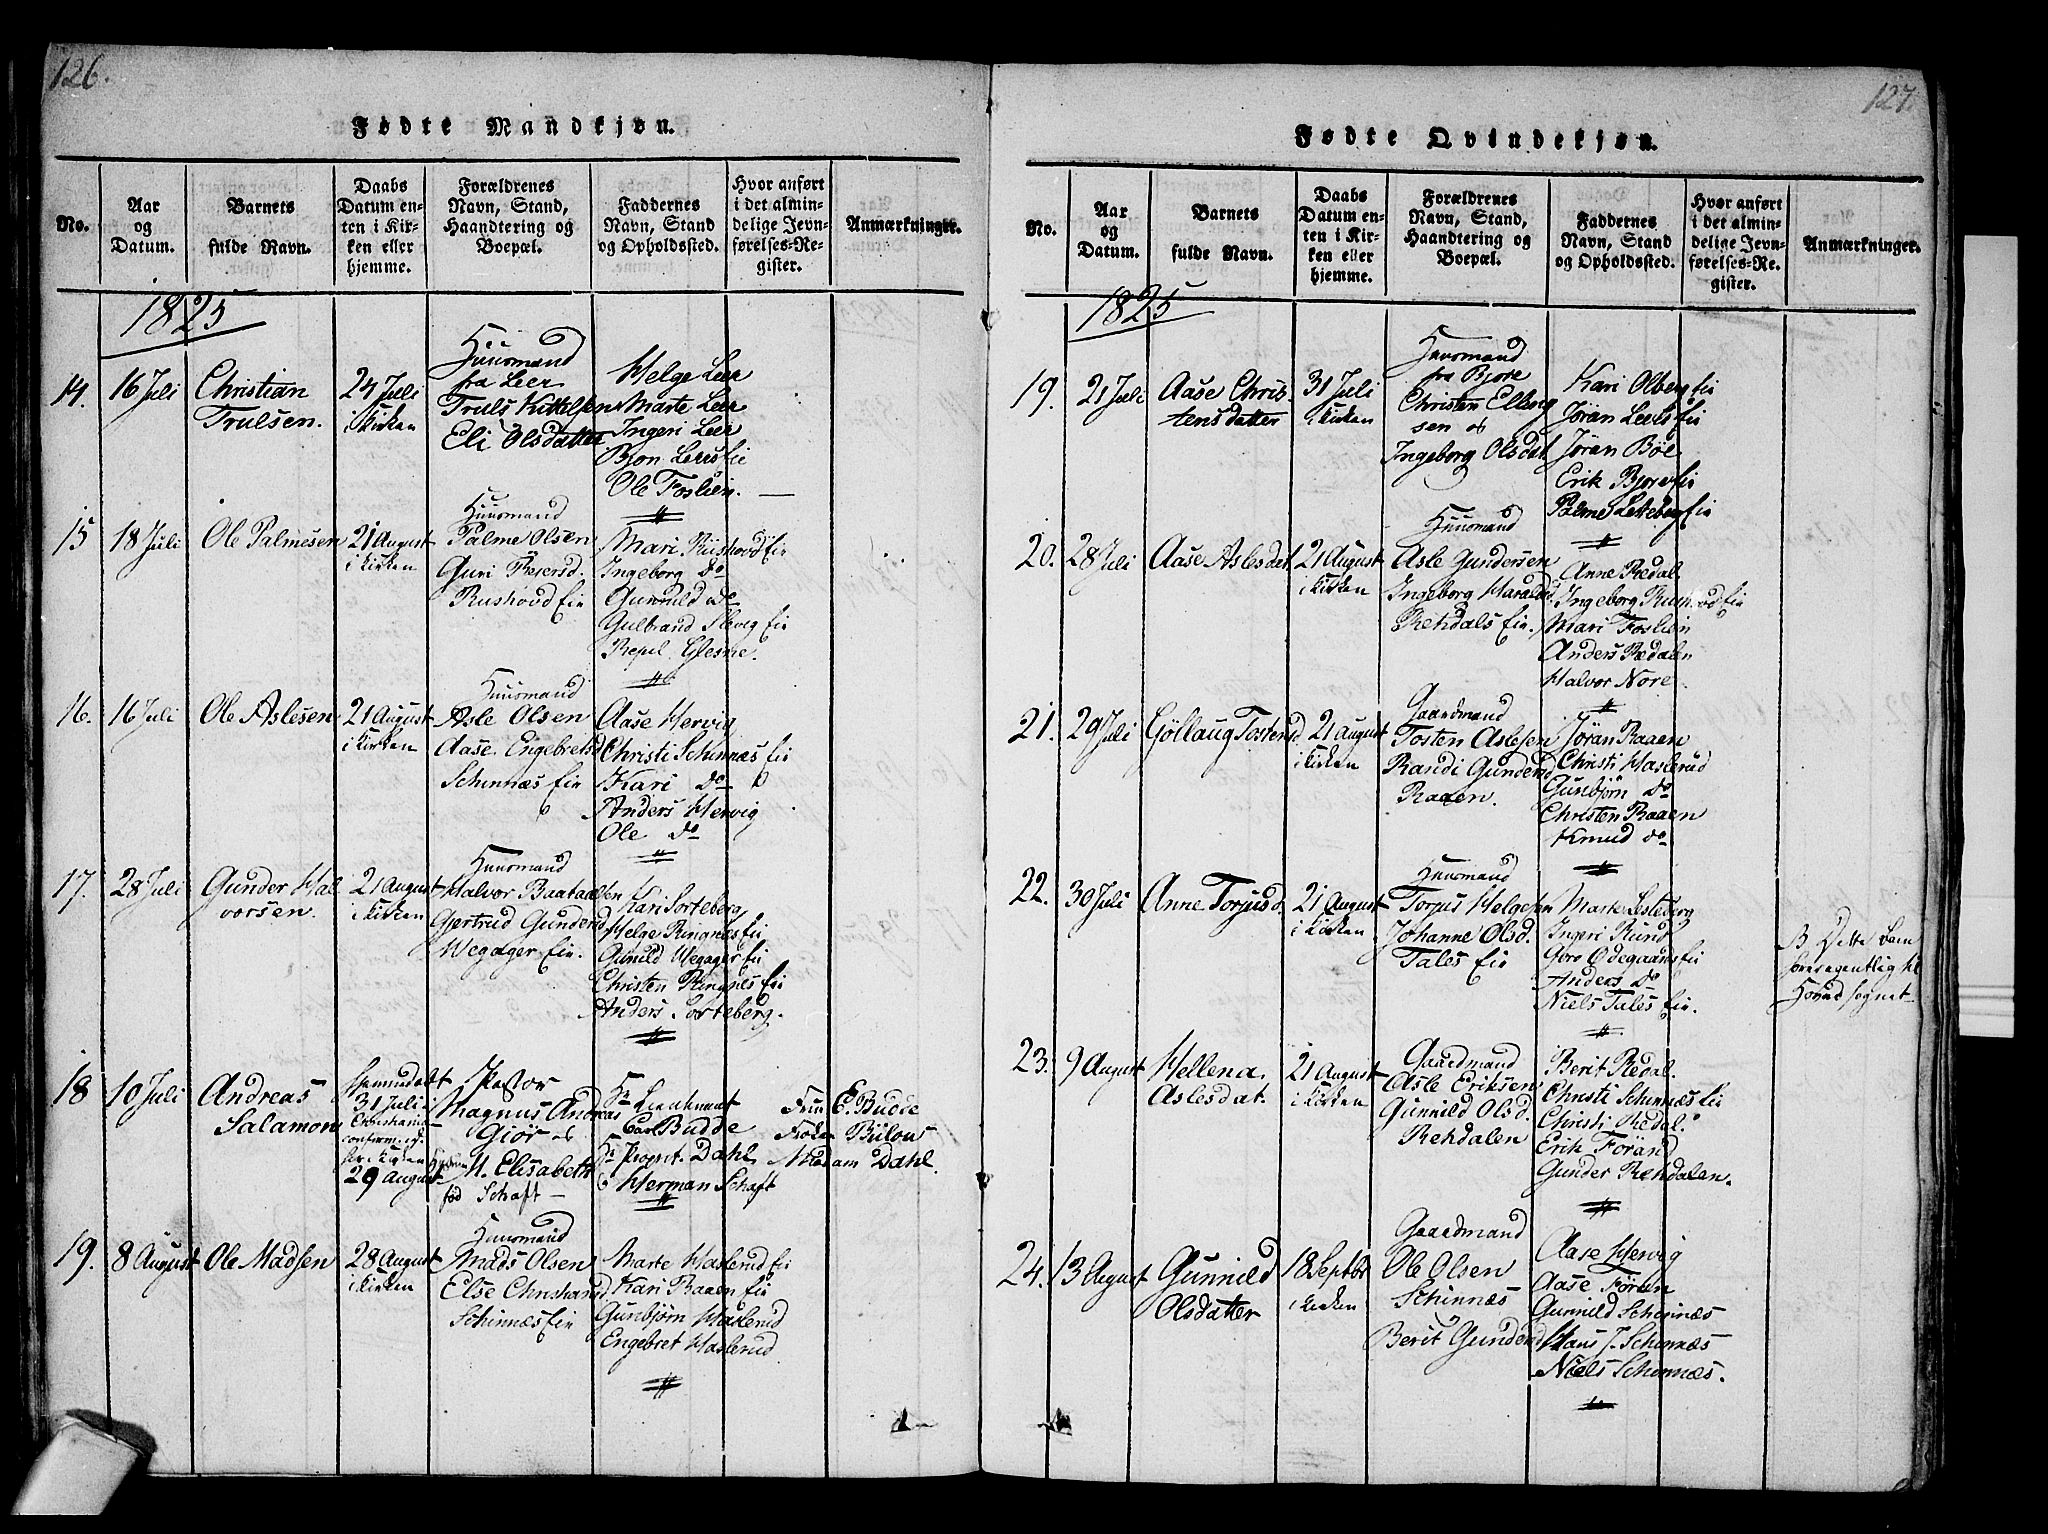 126.
Fødte Mandkjøn.
No.
Aar
og
Datum.
Barnets
fulde Navn.
Daabs
Datum en-
ten i Kir-
ken eller
hjemme.
Forældrenes
Navn, Stand,
Haandtering og
Boepæl.
Faddernes
Navn, Stand
og Opholdssted.
Hvor anført
i det almin-
delige Jevn-
førelses-Re-
gister.
Anmærkninger.
1825
14.
16 Juli
Christian
Trulsen.
24 Juli
i Kirken
Huusmand
fra Leer
Truls Kittelsen
Eli Olsdatter
Helge Leer
Marte Leer
Ingeri Leer
Bjon Leerseie
Ole Foslien.
15
18 Juli
Ole Palmesen
21 August
i Kirken
Huusmand
Palme Olsen
Guri Reiersd.
Rushovd Eie
Mari Rushovd Eie
Ingeborg do
Gunnild do
Gulbrand Slevig Eie
Glesne.
16.
16 Juli
Ole Aslesen
21 August
i Kirken
Huusmand
Asle Olsen
Aase Engebretsd
Schinnæs Eie
Aase Hervig
Christi Schinnæs Eie
Kari do
Anders Hervig
Ole do
17.
28 Juli
Gunder Hal
vorsen.
21 August
i Kirken
Huusmand
Halvor Baataalsen
Gjertrud Gundersd
Wegager Eie.
Kari Sorteberg
Helge Ringnæs Eie
Gunild Wegager Eie
Christen Ringnes Eie
Anders Sorteberg.
18
10 Juli
Andreas
Salamon
hjemmedøbt
31 Juli
Christiania
confirm.
Kirken
29 August
Pastor
Magnus Andreas
Giør og
M. Elisabeth
fød Schaft
Hr Lieutnant
Carl Budde
Hr Propst. Dahl
Herman Schaft
Fru E. Budde
Frøken Bülow
Madam Dahl.
19.
8 August
Ole Madsen
28 August
i Kirken
Huusmand
Mads Olsen
Else Christiansd
Schinnæs Eie
Marte Haslerud Eie
Kari Raaen Eie
Gunbjørn Haslerud
Engebret Haslerud
127.
Fødte Qvindekjøn.
No.
Aar
og
Datum.
Barnets
fulde Navn.
Daabs
Datum en-
ten i Kir-
ken eller
hjemme.
Forældrenes
Navn, Stand,
Haandtering og
Boepæl.
Faddernes
Navn, Stand
og Opholdssted.
Hvor anført
i det almin-
delige Jevn-
førelses-Re-
gister.
Anmærkninger.
1825
19.
21 Juli
Aase Chris-
tensdatter
31 Juli
i Kirken
Huusmand
fra Bjøre
Christen Elling
sen og
Ingeborg Olsdat.
Kari Olberg Eie
Jøran Leers Eie
Jøran Bøe
Erik Bjøre Eie
Palme Lesteberg Eie
20.
28 Juli
Aase Aslesdat.
21 August
i Kirken
Huusmand
Asle Gundersen
Ingeborg Haralds
Rehdals Eie.
Anne Redal
Ingeborg Rushovd Eie
Mari Foslien
Anders Redalen
Halvor Nore.
21.
29 Juli
Gøllaug Tostensd
21 August
i Kirken
Gaardmand
Tosten Aslesen
Randi Gundersd
Raaen.
Jøran Raaen
Christi Haslerud
Gunbjørn do
Christen Raaen
Knud do
22.
30 Juli
Anne Torjusd.
21 August
i Kirken
Huusmand
Torjus Helgesen
Johanne Olsd.
Tales Eie
Marte Lesteberg
Ingeri Rund
Goro Ødegaards Eie
Anders do
Niels Tales Eie.
Dette Barn
hører egentlig til
Sognet
23.
9 August
Hellena
Aslesdat.
21 August
i Kirken
Gaardmand
Asle Eriksen
Gunnild Olsd.
Rehdalen
Berit Redal
Christi Schinnæs Eie
Christi Redal
Erik Førand
Gunder Rehdalen.
24.
13 August
Gunnild
Olsdatter
18 Septbr
i Kirken
Gaardmand
Ole Olsen
Schinnæs
Berit Gundersd
Aase Hervig
Aase Føren
Gunnild Schinnæs
Hans J. Schinnæs
Niels Schinnæs.